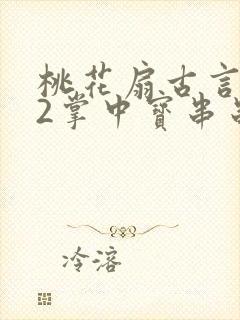 桃花扇古言
2掌中寳串
冷溶